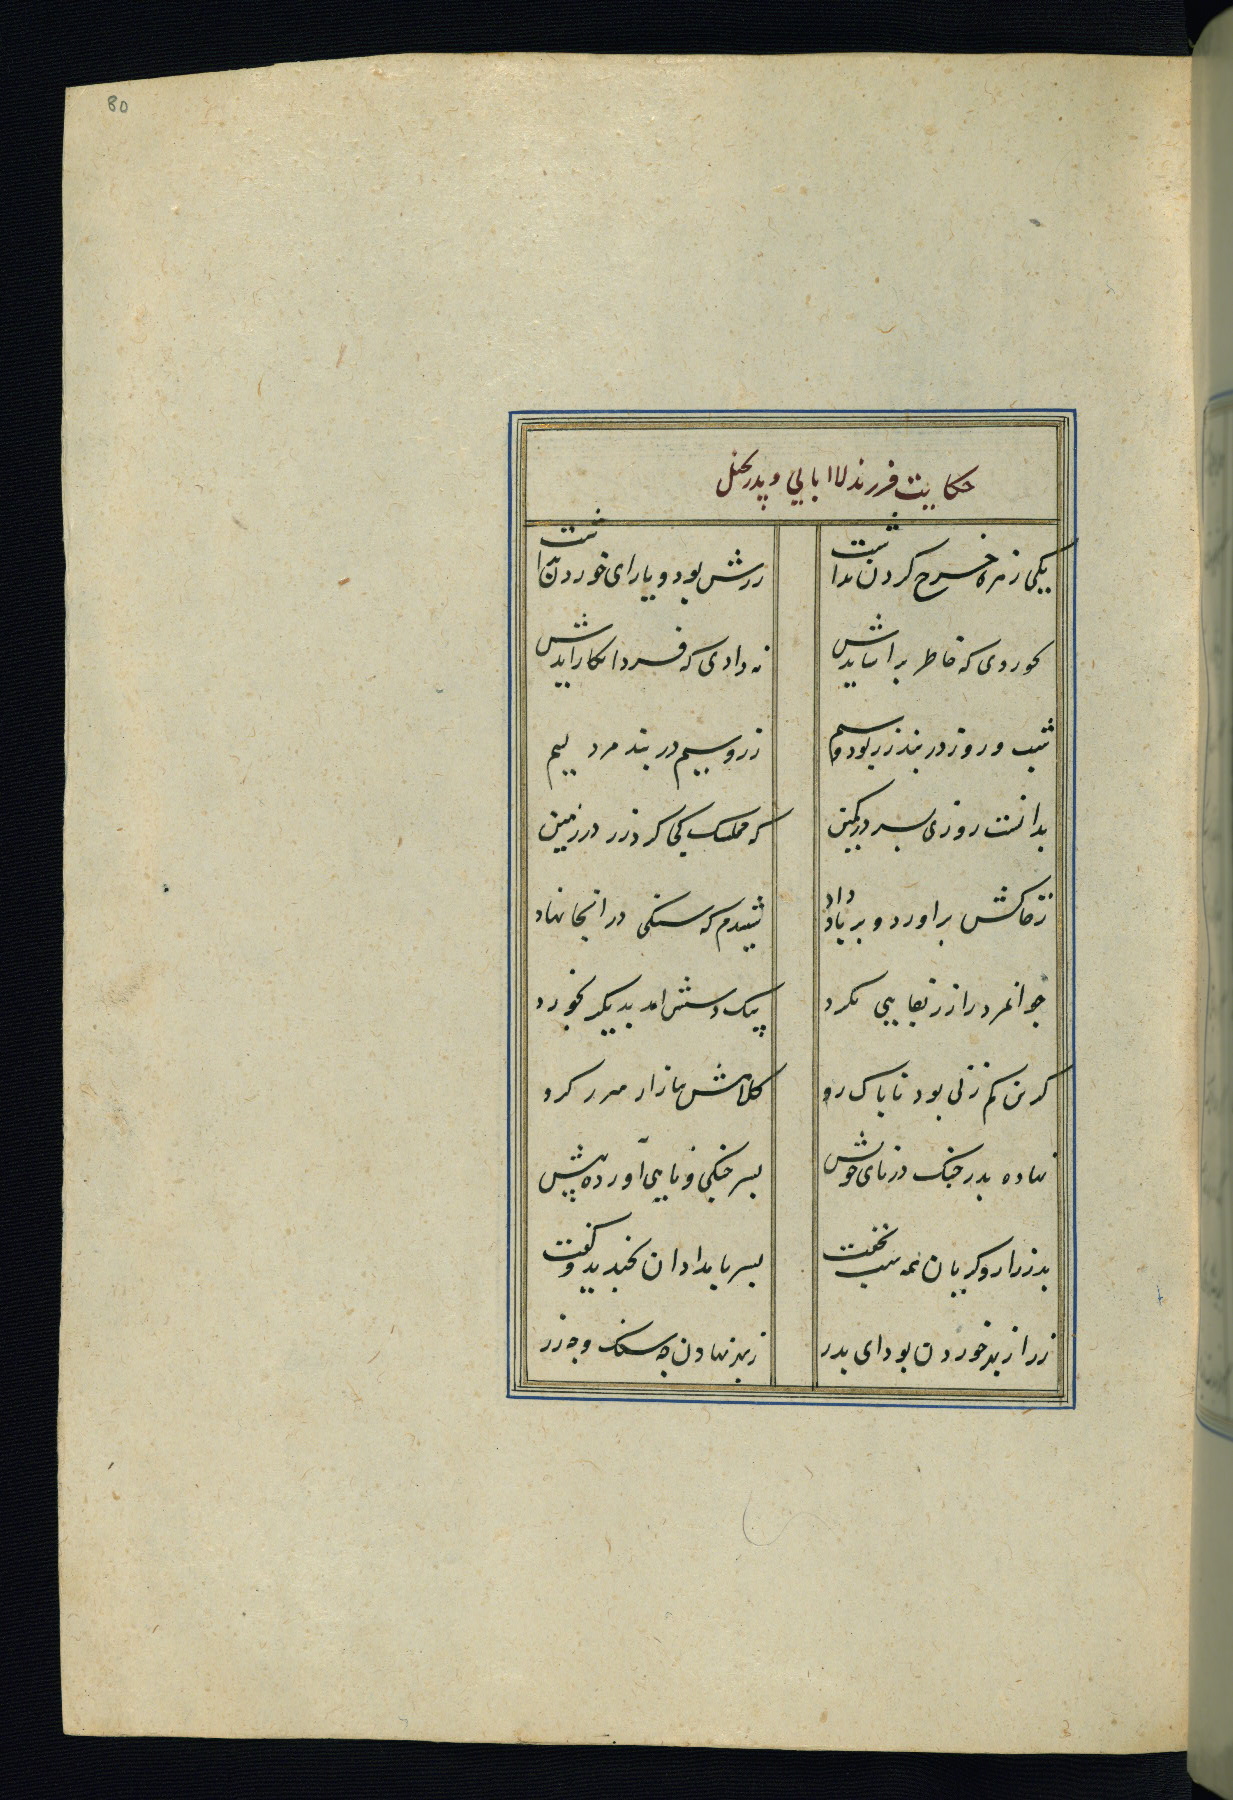 80
حکایت فرزند لاابالی و پدر بخیل
یکی زهره خرج کردن نداشت زرش بود و یارای خوردن نداشت
نخوردی که خاطر برآسایدش نه دادی که فردا بکار آیدش
شب و روز در بند زر بود و سیم زر و سیم در بند مرد لئیم
بدانست روزی پسر در کمین که ممسک کجا کرد زر در زمین
زخاکش برآورد و بر باد داد شنیدم که سنگی در آنجا نهاد
جوانمرد را زر بقایی نکرد بیک دستش آمد بدیگر بخورد
کزین کم زنی بود ناپاک رو کلاهش ببازار و میزر گرو
نهاده پدر چنگ در نای خویش پسر چنگی و نایی آورده پیش
پدر زار و گریان همه شب نخفت پسر بامدادان بخندید و گفت
زر از بهر خوردن بود ای پدر ز بهر نهادن چه سنگ و چه زر